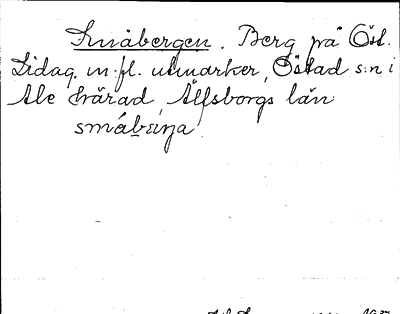 Småbergen. Berg på Öst.
Lidag. m. fl. utmarker, Östad s:n i
Ale härad, Älfsborgs län
småbærja